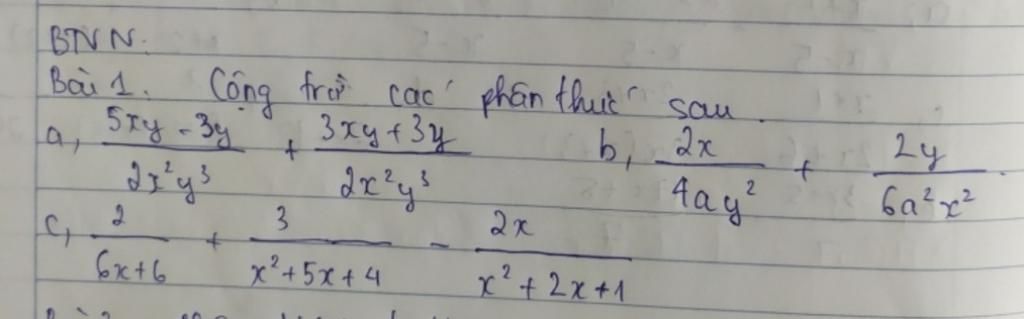 BTVN.
Bài 1. Cộng trừ các phân thức sau.
a, (5xy - 3y)/(2x²y³) + (3xy + 3y)/(2x²y³) b, 2x/(4ay²) + 2y/(6a²x²).
c, 2/(6x+6) + 3/(x²+5x+4) - 2x/(x²+2x+1)